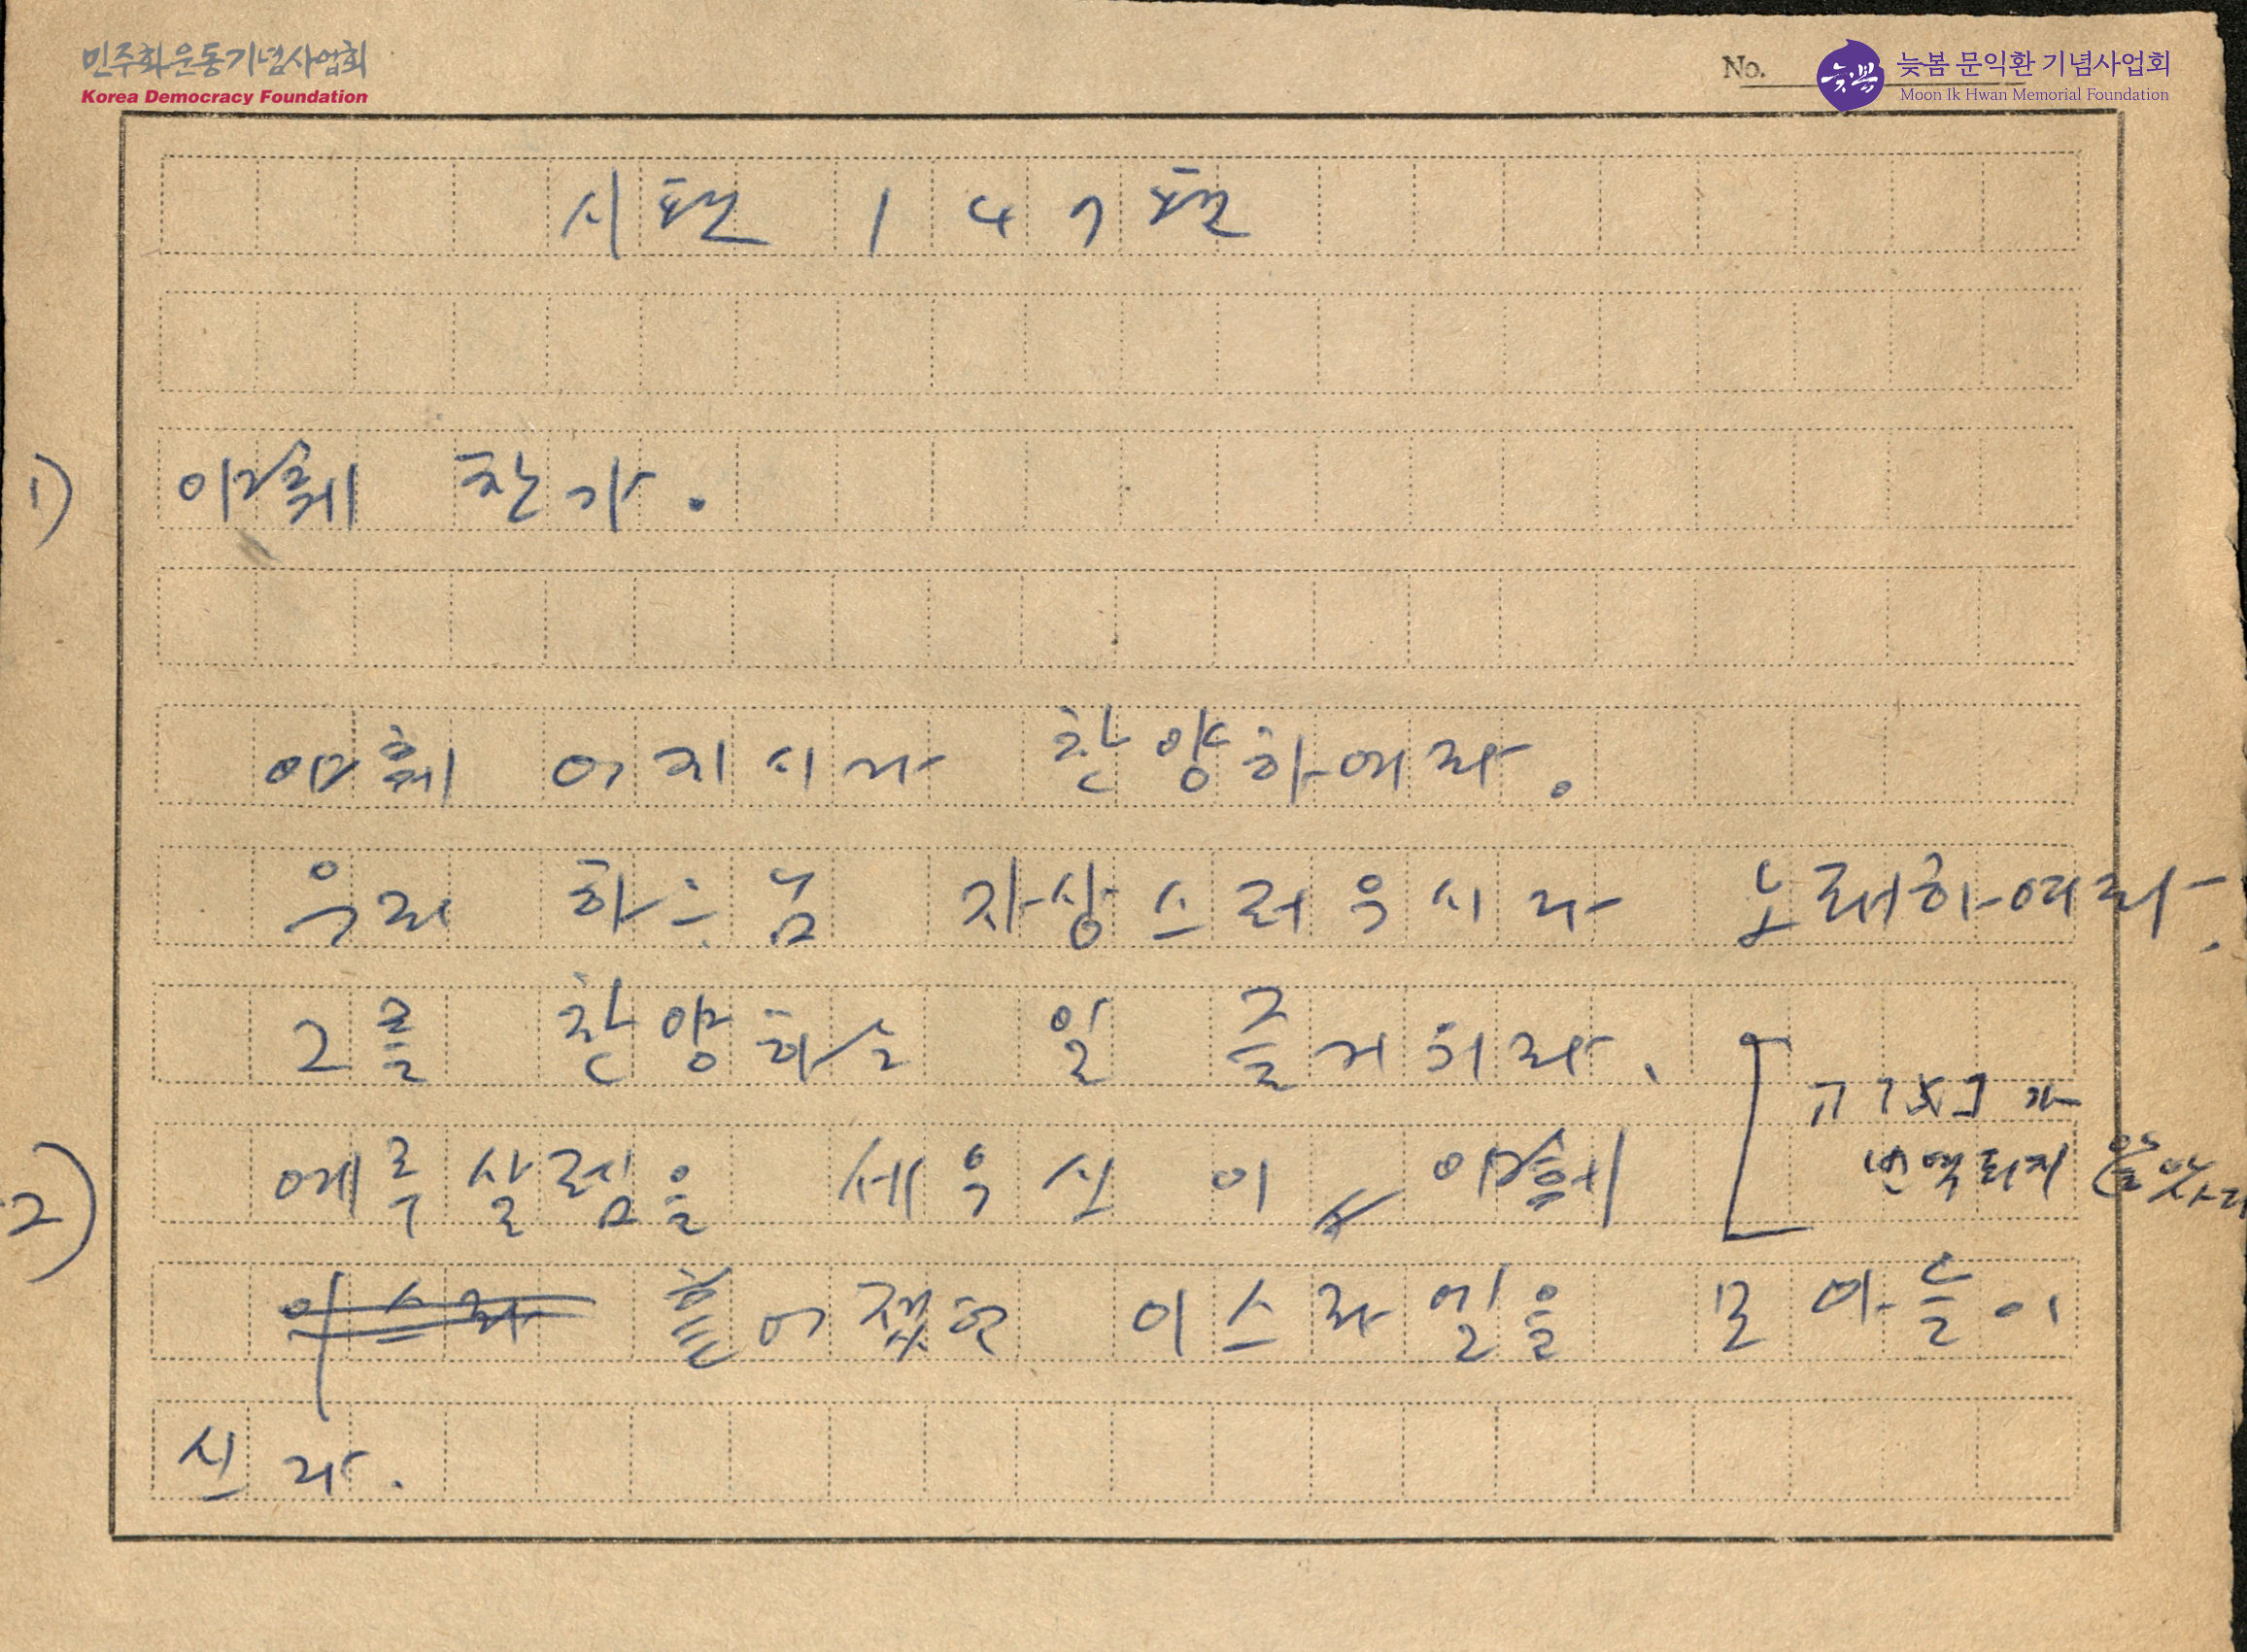 민주화운동기념사업회
Korea Democracy Foundation
No.
늦봄
늦봄 문익환 기념사업회
Moon Ik Hwan Memorial Foundation
시편 147편
1) 야훼 찬가.
야훼 어지시다 찬양하여라.
우리 하느님 자상스러우시다 노래하여라.
그를 찬양하는 일 즐거워라.
가
번역되지 않았다
2) 예루살렘을 세우신 이 야훼
이스라 흩어졌던 이스라엘을 모아들이
신다.